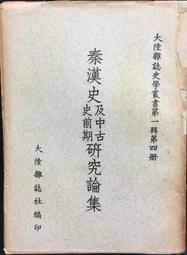 大陸雜誌史學叢書第一輯第四册
秦漢史及中古史前期研究論集
大陸雜誌社編印